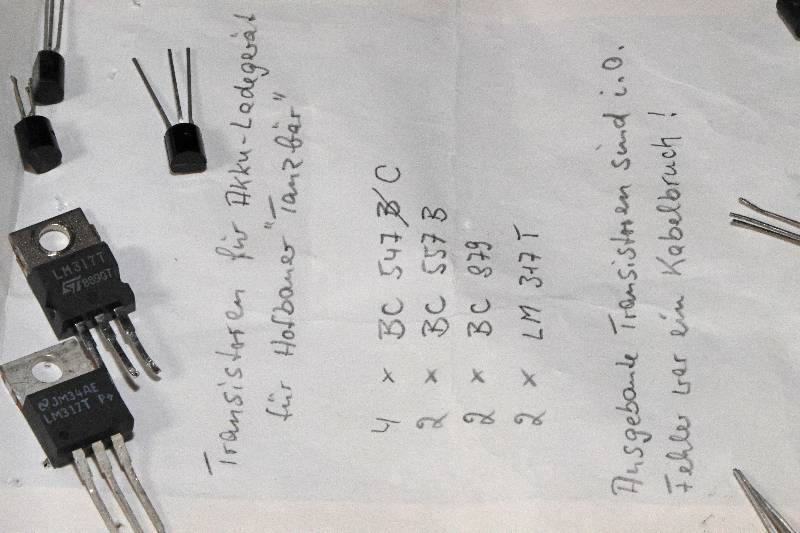 Transistoren für Akku-Ladegerät
für Hofbauer "Tanzbär"
4 x BC 547 B C
2 x BC 557 B
2 x BC 879
2 x LM 317 T
Ausgebaute Transistoren sind i.O.
Fehler war ein Kabelbruch!
LM317T
JM34AE
LM317T P+